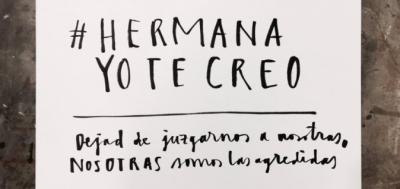 # HERMANA
YO TE CREO
Dejad de juzgarnos a nosotras,
NOSOTRAS somos las agredidas